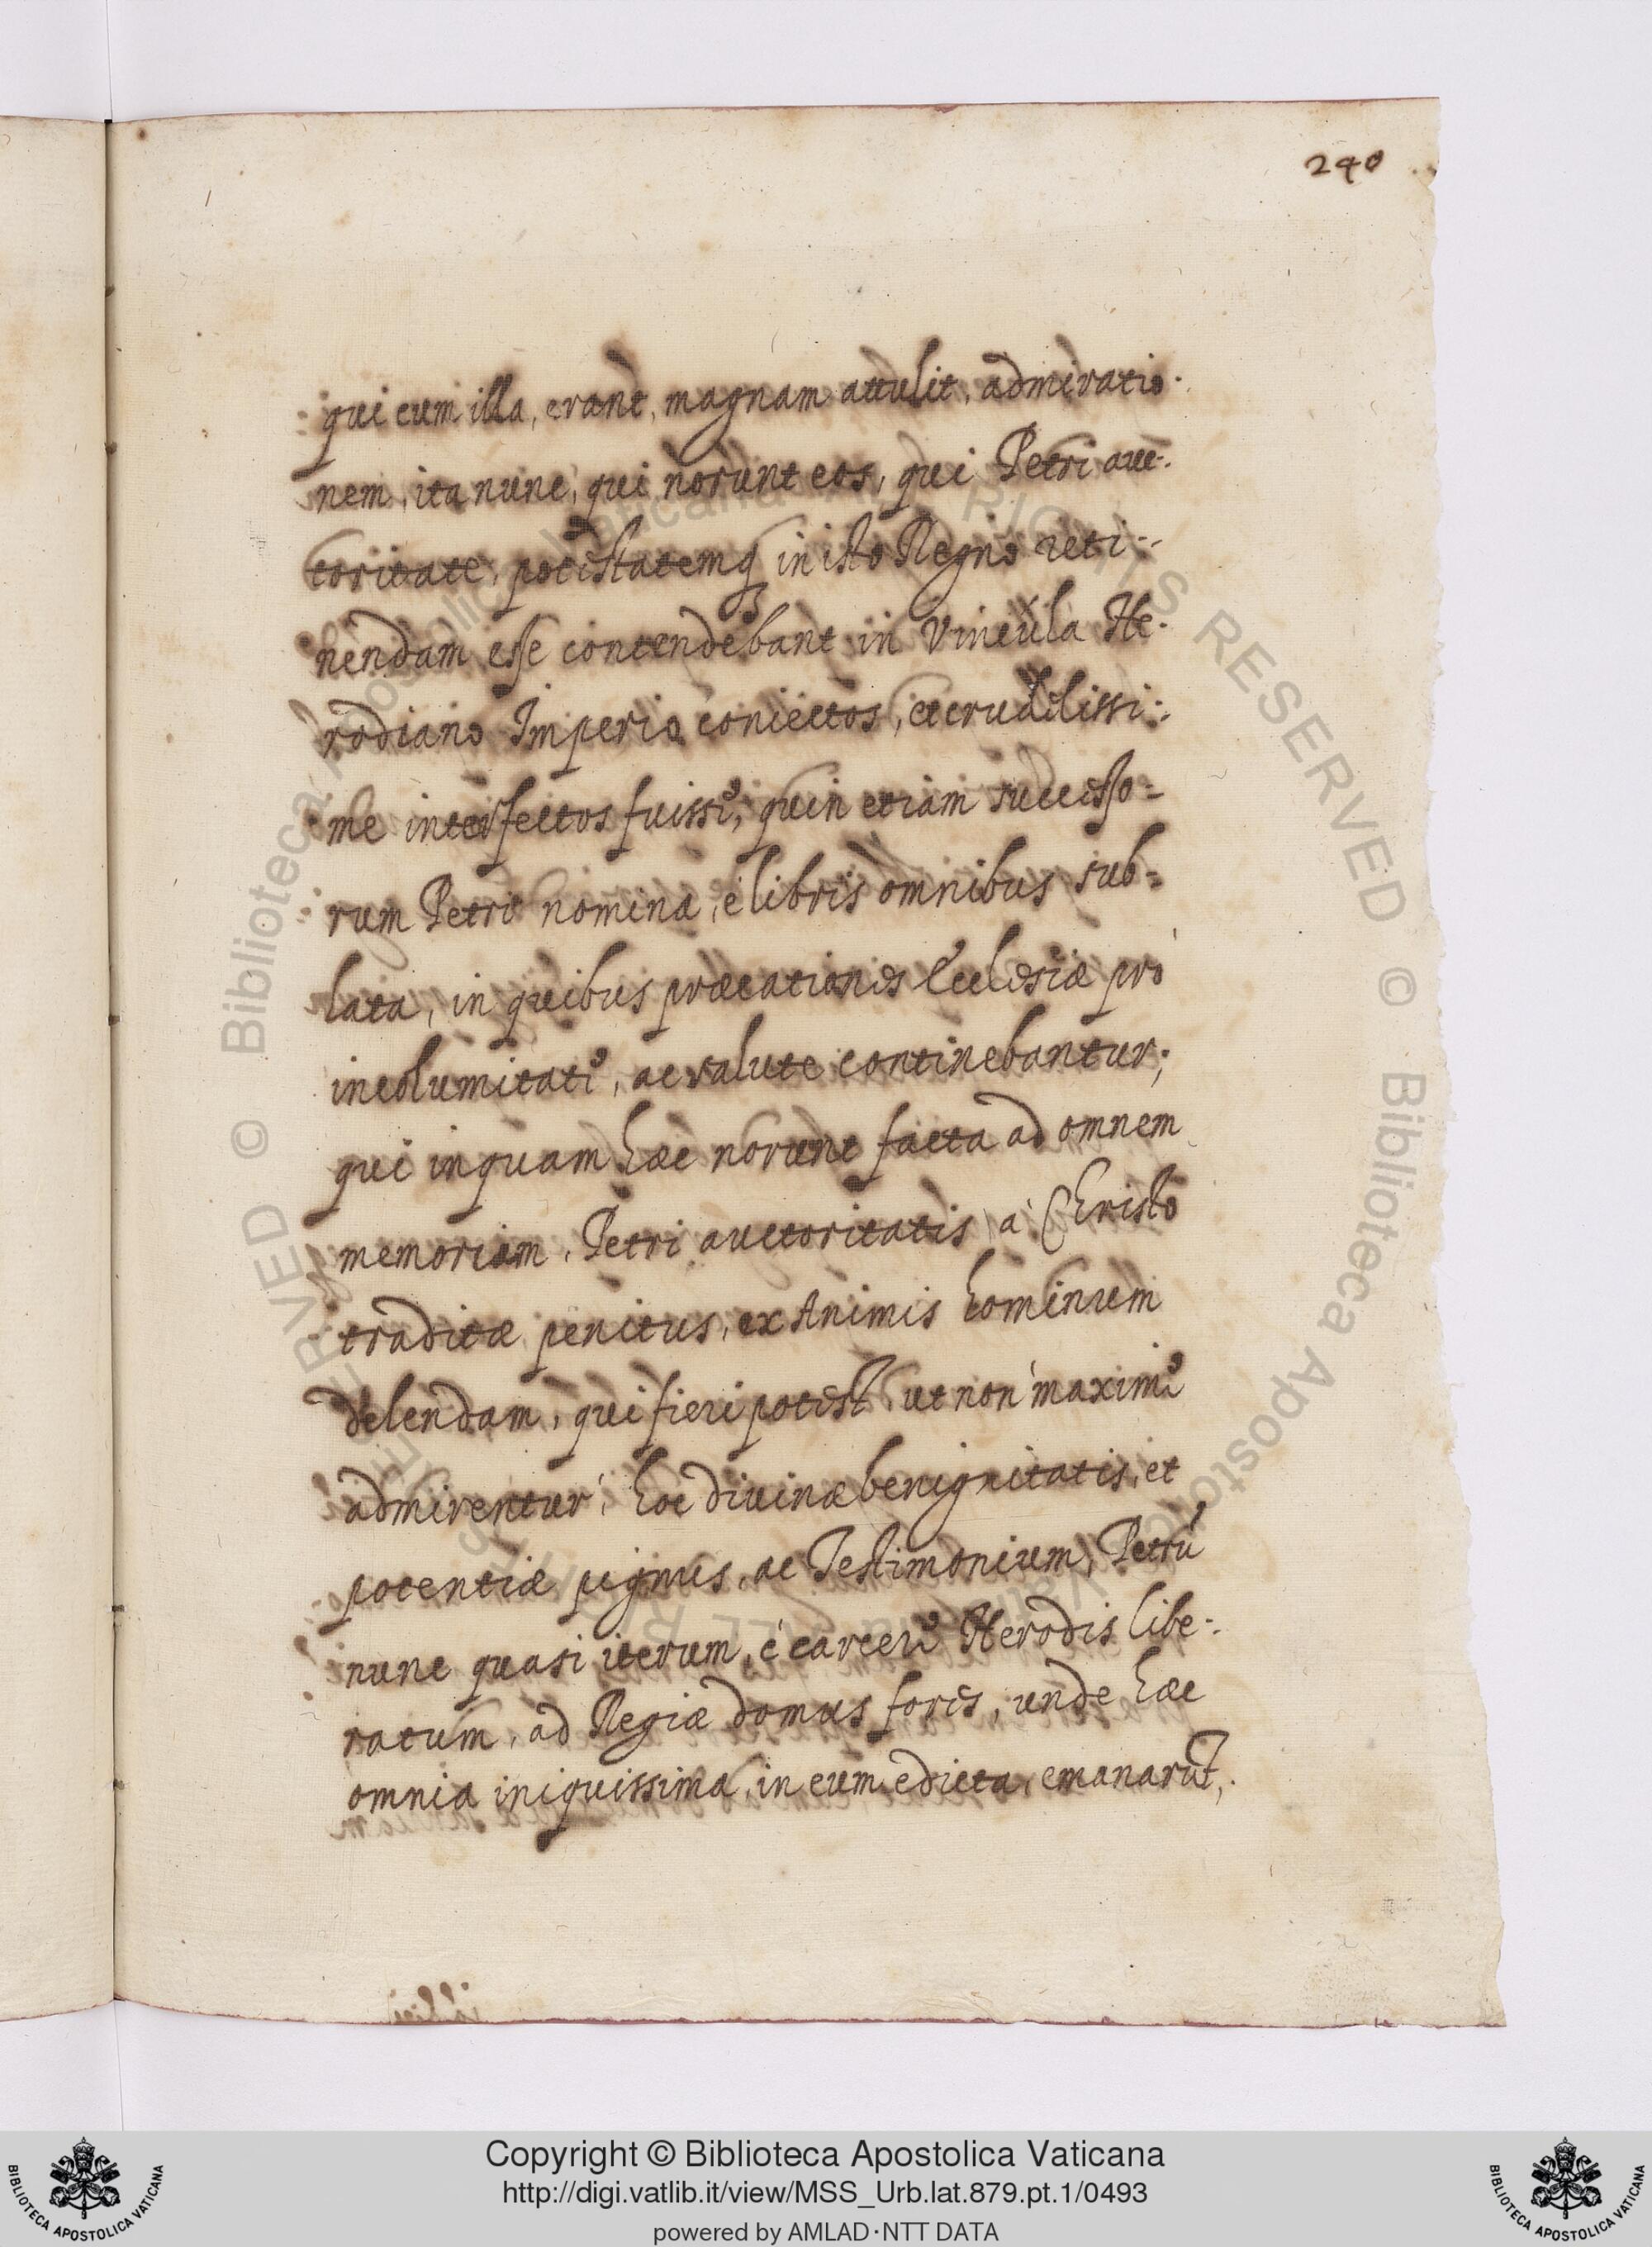 240
qui cum illa, erant, magnam attulit, admiratio-
nem, ita nunc, qui norunt eos, qui Petri auc-
toritate, potestatemq in isto Regno reti-
nendam esse contendebant in Vincula He-
rodiano Imperio coniectos, et crudelissi-
me interfectos fuisse, quin etiam successo=
rum Petri nomina, è libris omnibus sub=
lata, in quibus præcationes Ecclesiæ pro
incolumitate, ac salute continebantur;
qui inquam hæc norunt facta ad omnem
memoriam, Petri auctoritatis à Christo
traditæ penitus, ex Animis hominum
delendam, qui fieri potest, ut non maxime
admirentur, hoc divinæ benignitatis, et
potentiæ pignus, ac Testimonium, Petrū
nunc quasi iterum, è carcere Herodis libe-
ratum, ad Regiæ domus fores, unde hæc
omnia iniquissima, in eum edicta, emanarūt,
© Biblioteca Apostolica Vaticana ALL RIGHTS RESERVED
© Biblioteca Apostolica Vaticana ALL RIGHTS RESERVED
BIBLIOTECA APOSTOLICA VATICANA
Copyright © Biblioteca Apostolica Vaticana
http://digi.vatlib.it/view/MSS_Urb.lat.879.pt.1/0493
powered by AMLAD·NTT DATA
BIBLIOTECA APOSTOLICA VATICANA